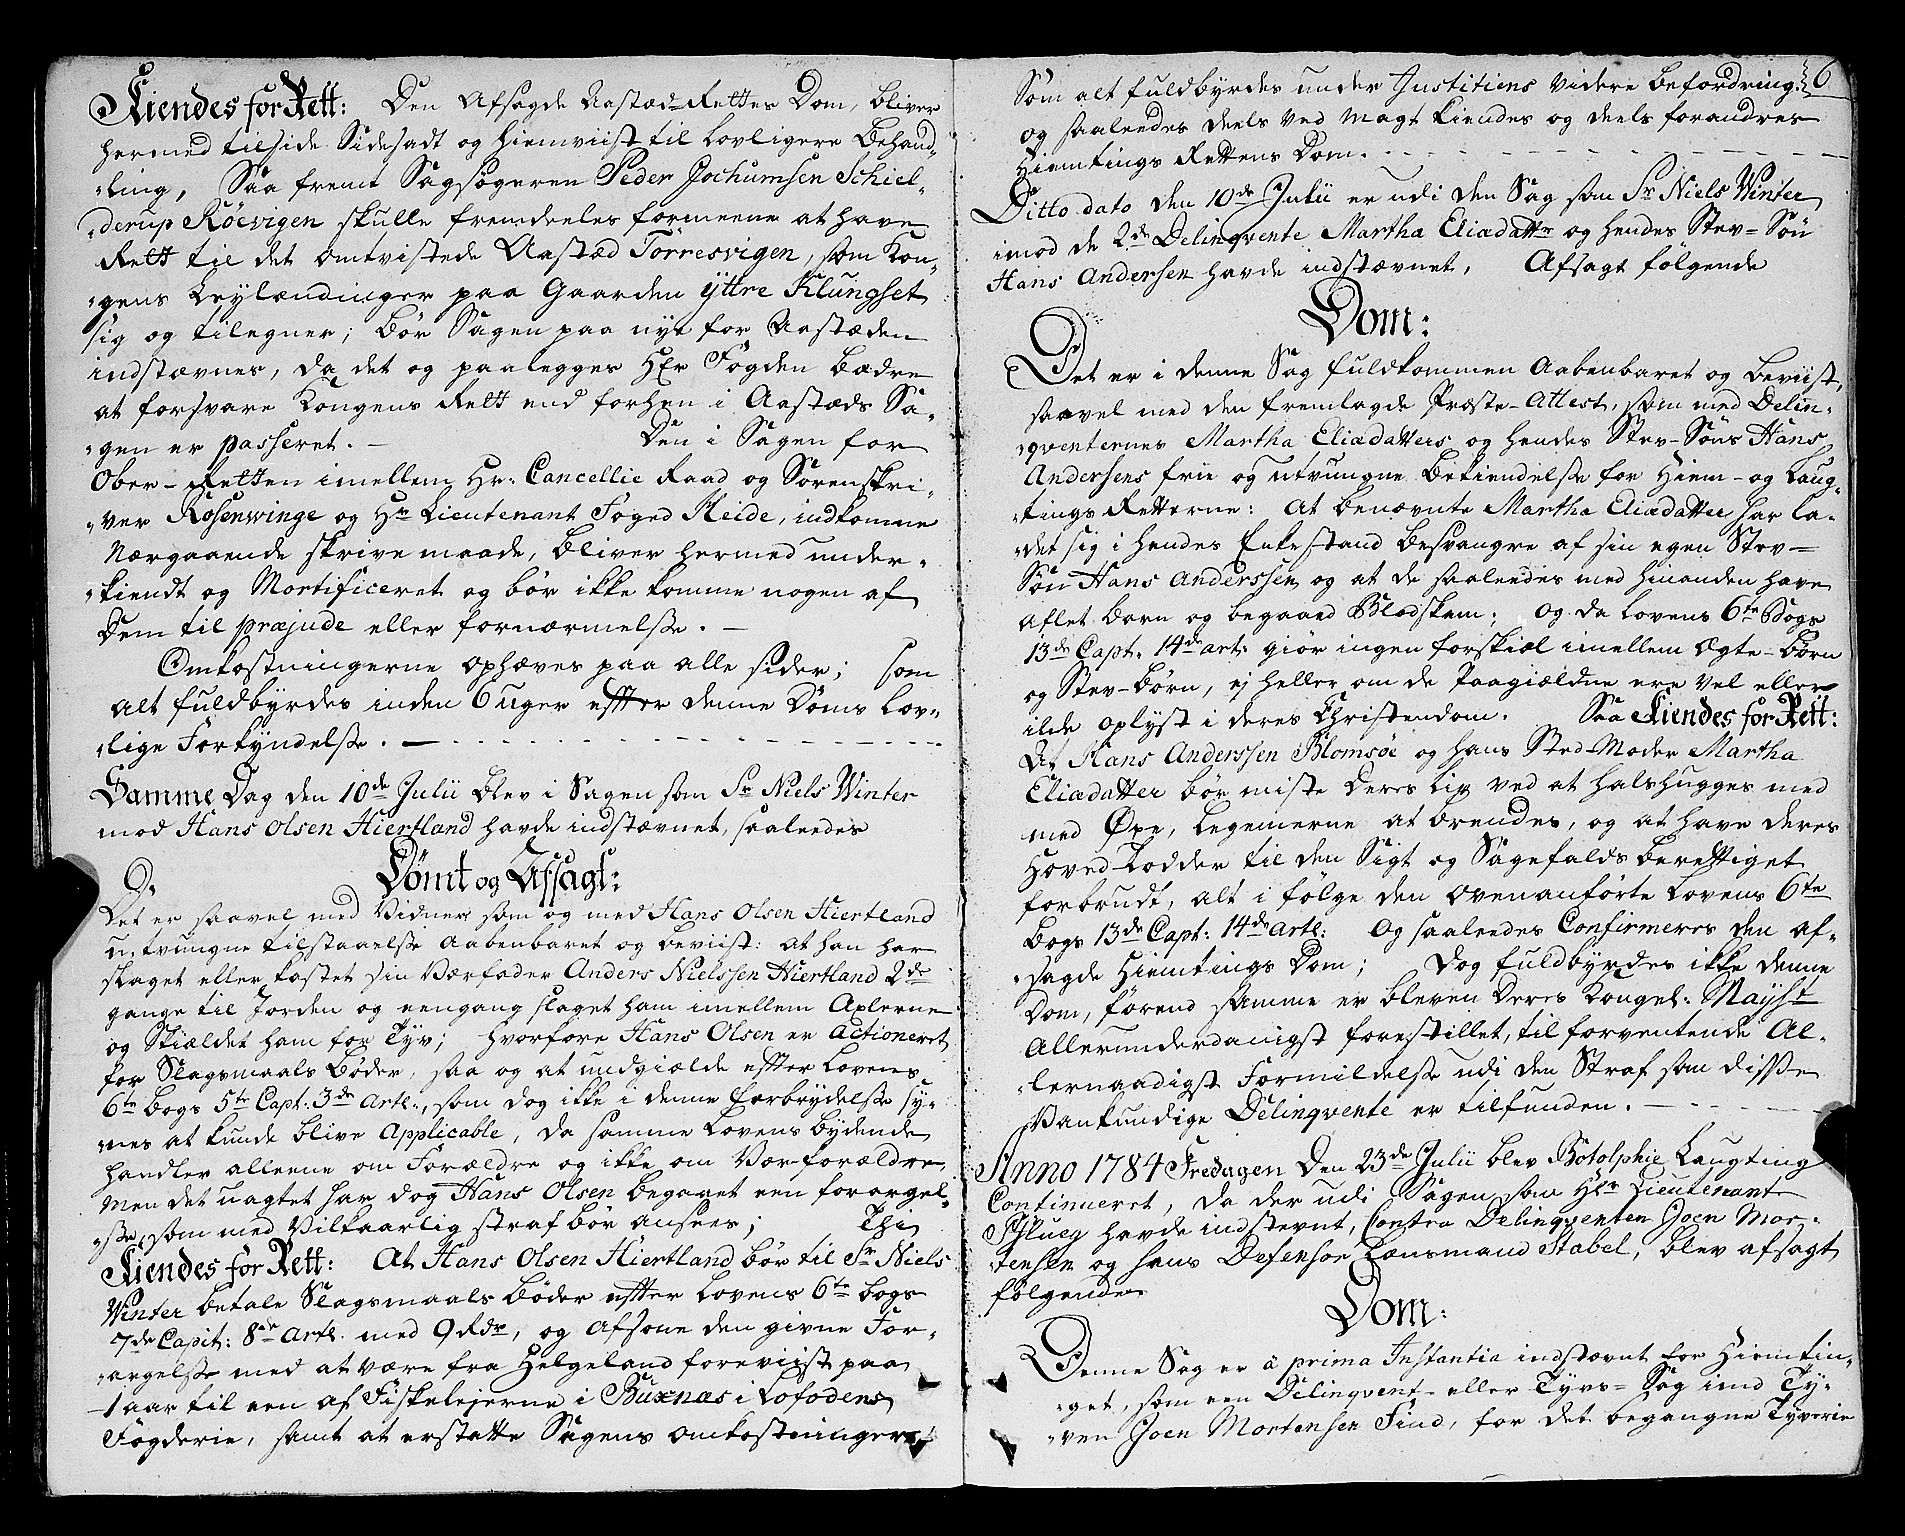 Kiendes for Rett: Den Afsagde Aastæd-Rettes Dom, bliver
hermed tilside Sidesadt og hiemviist til lovligere Behand-
-ling, Saa fremt Sagsøgeren Peder Jochumsen Schiel-
-derup Röevigen skulle fremdeeles formeene at have
Rett til det omtvistede Aastæd Törresvigen, som Kon-
-gens Leylændinger paa Gaarden ÿttre Klungset
sig og tilegner; bör Sagen paa nye for Aastæden
indstævnes, da det og paalegges HEr Fogden bædre
at forsvare Kongens Rett end forhen i Aastæds Sa-
-gen er passeret. - Den i Sagen for
Ober-Retten imellem Hr: Cancellie Raad og Sorenskri-
-ver Rosenwinge og Hr Lieutenant Foged Heide, indkomne
Nærgaaende skrivemaade, bliver hermed under-
-kiendt og Mortificeret og bör ikke komme nogen af
Dem til præjude eller fornærmelsse. -
Omkostningerne ophæves paa alle sider; som
alt fuldbyrdes inden 6 uger effter denne Doms Lov-
-lige Forkÿndelsse. -
Samme Dag den 10de Julii blev i Sagen som Sr Niels Winter
mod Hans Olsen Hiertland havde indstævnet, saaleedes
Dömt og Afsagt:
Det er saavel med Vidner som og med Hans Olsen Hiertland
u-tvungne tilstaaelsse aabenbaret og beviist: at han har
slaget eller kastet sin Værfader Anders Nielssen Hiertland 2de
gange til Jorden og eengang slaget ham imellem Axlerne
og Skiældet ham for Tyv; hvorfore Hans Olsen er actioneret
for Slagsmaals Bøder, saa og at undgiælde effter Lovens
6te bogs 5te Capt: 3de Artl:, som dog ikke i denne Forbrydelsse sy-
-nes at kunde blive Applicable, da samme Lovens bydende
handler alleene om Forældre og ikke om Vær-forældre,
Men det uagtet har dog Hans Olsen begaaet een forargel-
-sse, som med Vilkaarlig straf bør ansees; Thi
Kiendes for Rett: At Hans Olsen Hiertland bør til Sr Niels
Winter betale Slagsmaals Bøder effter Lovens 6te bogs
7de Capit: 8de Artl. med 9 Rdr, og Afsone den givne For-
-argelsse med at være fra Helgeland foreviist paa
1 aar til een af Fiskelejerne i Buxnæs i Lofodens
Fögderie, samt at erstatte Sagens omkostninger,
6
Som alt fuldbyrdes under Justitiens videre befordring:
og saaleedes deels ved Magt kiendes og deels forandres
Hiemtings Rettens Dom.
Ditto dato den 10de Julii er udi den Sag som Sr Niels Winter
imod de 2de Delinqvente Martha Eliædattr og hendes Stev-Sön
Hans Andersen havde indstævnet, Afsagt følgende
Dom:
Det er i denne Sag fuldkommen Aabenbaret og beviist,
saavel med den fremlagde Præste-Attest, som med Delin-
-qventernes Martha Eliædatters og hendes Stev-Söns Hans
Andersens frie og utvungne bekiendelsse for Hiem- og Laug-
-tings Retterne: At benævnte Martha Eliædatter har la-
-det sig i hendes Enkestand besvangre af sin egen Stev-
Sön Hans Anderssen og at de saaleedes med hinanden have
aflet barn og begaaed Blodskam; og da Lovens 6te Bogs
13de Capt: 14de art: giör ingen forskiæl imellem Ægte-börn
og Stev-börn, ej heller om de Paagiældne ere vel eller
ilde oplyst i deres Christendom. Saa Kiendes for Rett:
At Hans Anderssen Blomsöe og hans Sted-Moder Martha
Eliædatter bör miste Deres Liv ved at halshugges med
med Øxe, Legemerne at brendes, og at have deres
Hoved-Lodder til den Sigt og Sagefalds berettiget
forbrudt, alt i følge den ovenanförte Lovens 6te
bogs 13de Capt: 14de artl: Og saaleedes Confirmeres den af-
-sagde Hiemtings Dom; Dog fuldbyrdes ikke denne
Dom, förend samme er bleven Deres Kongel: Mayst
Allerunderdanigst forestillet, til forventende Al-
-lernaadigst Formildelsse udi den Straf som disse
Vankundige Delinqvente er tilfunden. -
Anno 1784 Fredagen Den 23de Julii blev Botolphie Laugting
Continueret, da der udi Sagen som Hr Lieutenant
havde indstevnt, Contra Delinqventen Joen Mor-
-tensen og hans Defensor Lænsmand Stabel, blev afsagt
følgende
Dom:
Denne Sag er à prima Instantia indstævnt for Hiemtin-
-get, som een Delinqvent- eller Tyvs-Sag imod Ty-
-ven Joen Mortensen Find, for det begangne Tyverie